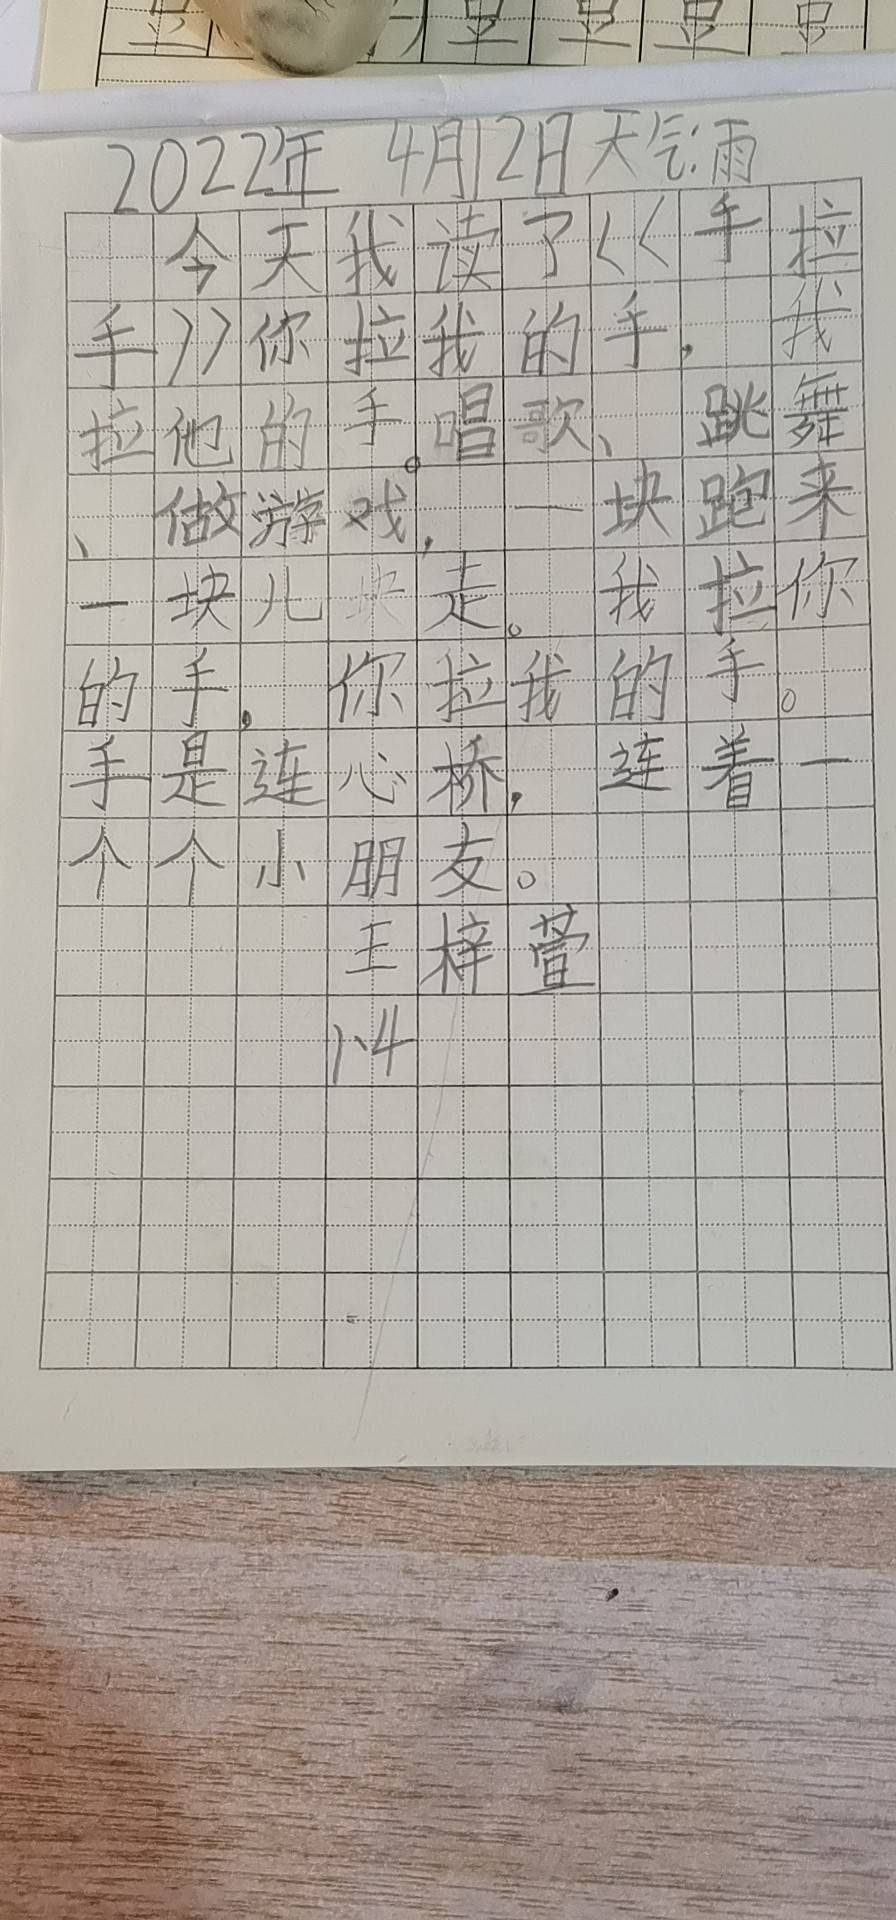 豆 豆 豆 豆 豆
2022年 4月12日天气:雨
今天我读了《手拉
手》你拉我的手,我
拉他的手。唱歌、跳舞
、做游戏,一块跑来
一块儿块走。我拉你
的手,你拉我的手。
手是连心桥,连着一
个个小朋友。
王梓萱
1.4